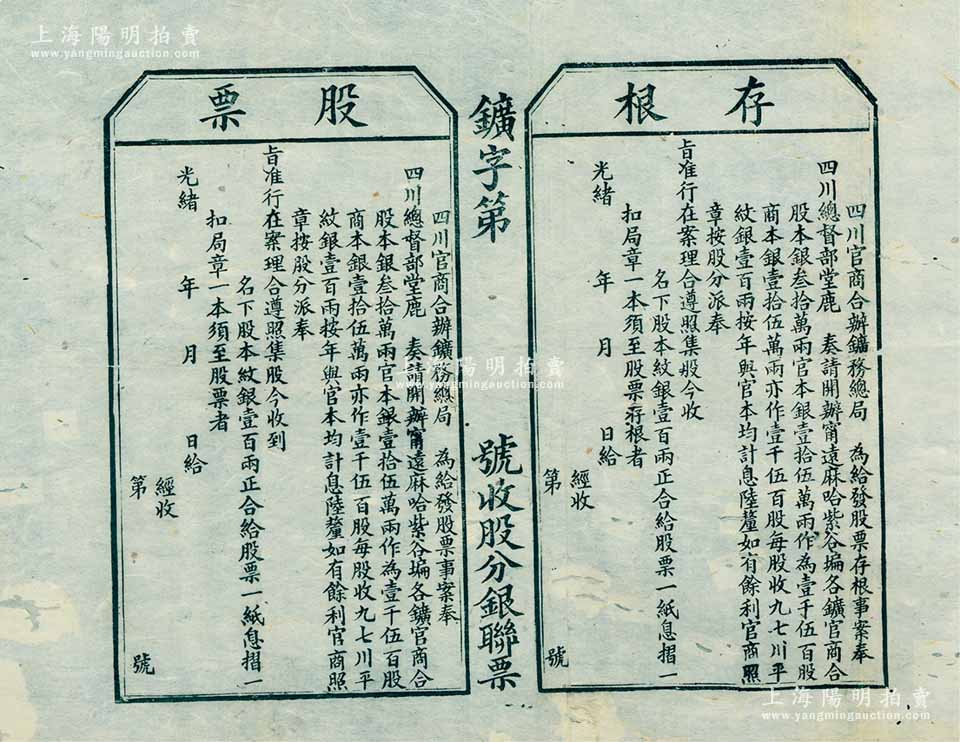 上海陽明拍賣
www.yangmingauction.com
存根
四川官商合辦鑛務總局　為給發股票存根事案奉
四川總督部堂鹿　奏請開辦甯遠麻哈紫谷壋各鑛官商合
股本銀叁拾萬兩官本銀壹拾伍萬兩作為壹千伍百股
商本銀壹拾伍萬兩亦作壹千伍百股每股收九七川平
紋銀壹百兩按年與官本均計息陸釐如有餘利官商照
章按股分派奉
旨准行在案理合遵照集股今收
名下股本紋銀壹百兩正合給股票一紙息摺一
扣局章一本須至股票存根者
光緒　年　月　日給
經收
第　號
鑛字第　號收股分銀聯票
股票
四川官商合辦鑛務總局　為給發股票事案奉
四川總督部堂鹿　奏請開辦甯遠麻哈紫谷壋各鑛官商合
股本銀叁拾萬兩官本銀壹拾伍萬兩作為壹千伍百股
商本銀壹拾伍萬兩亦作壹千伍百股每股收九七川平
紋銀壹百兩按年與官本均計息陸釐如有餘利官商照
章按股分派奉
旨准行在案理合遵照集股今收到
名下股本紋銀壹百兩正合給股票一紙息摺一
扣局章一本須至股票者
光緒　年　月　日給
經收
第　號
上海陽明拍賣
上海陽明拍賣
www.yangmingauction.com